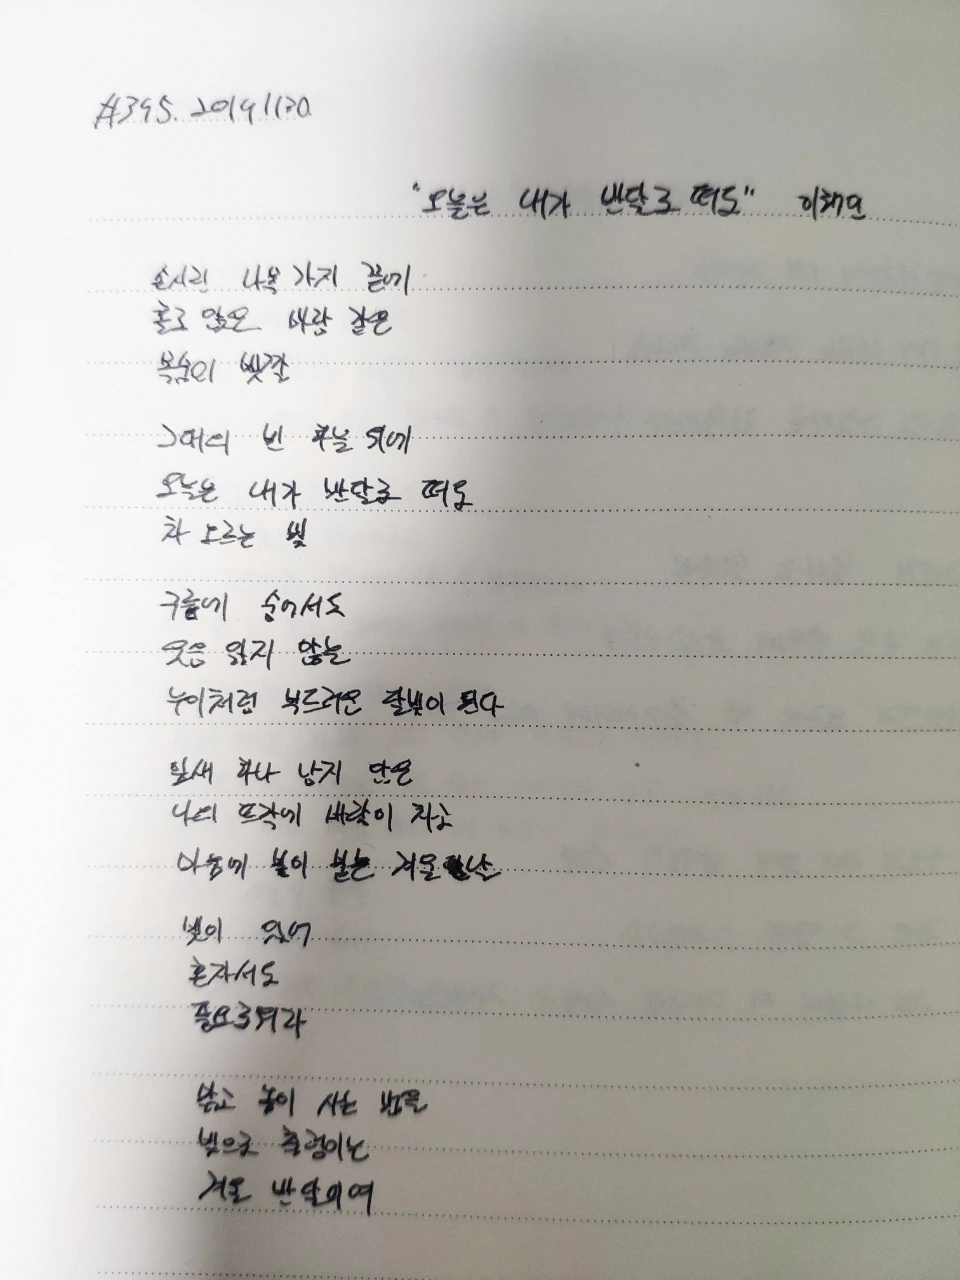 #395. 20191120.
"오늘은 내가 반달로 떠도" 이해인
손시린 나목 가지 끝에
홀로 앉은 바람 같은
목숨의 빛깔
그대의 빈 하늘 위에
오늘은 내가 반달로 떠도
차 오르는 빛
구름에 숨어서도
웃음 잃지 않는
누이처럼 부드러운 달빛이 된다
잎새 하나 남지 않은
나의 뜨락에 바람이 차고
마음에 불이 붙는 겨울날
빛이 있어
혼자서도
풍요로워라
맑고 높이 사는 법을
빛으로 출렁이는
겨울 반달이여